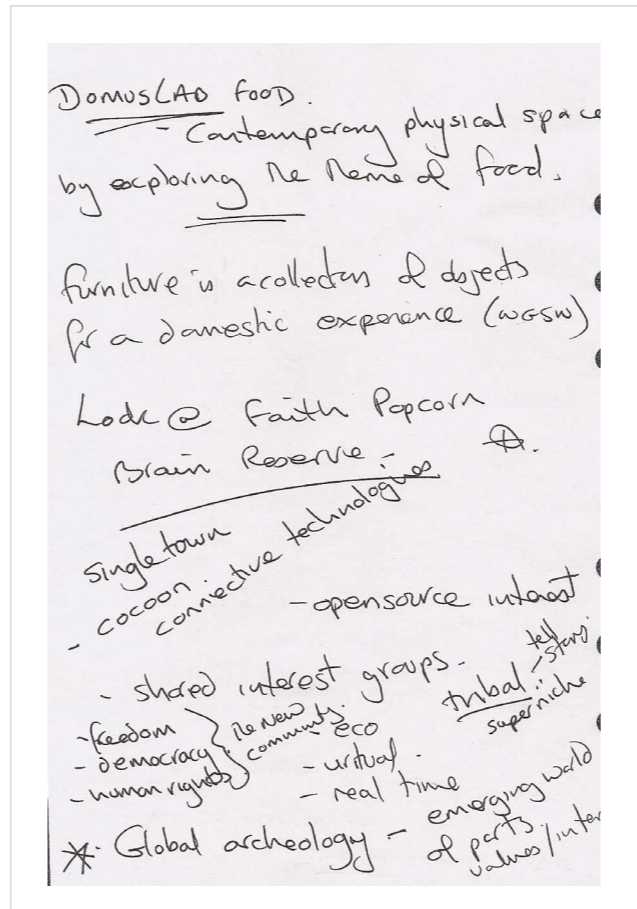 DomusLAB FOOD.
- Contemporary physical space
by exploring the theme of food.
furniture is a collection of objects
for a domestic experience (WGSN)
Look @ Faith Popcorn
Brain Reserve :-
singletown
- cocoon.
connective technologies
- opensource interest
- shared interest groups -
tribal -
superniche
- freedom
- democracy
- human rights
the new
community.
- eco
- virtual.
- real time
* Global archeology - emerging world
of parts
values/inter